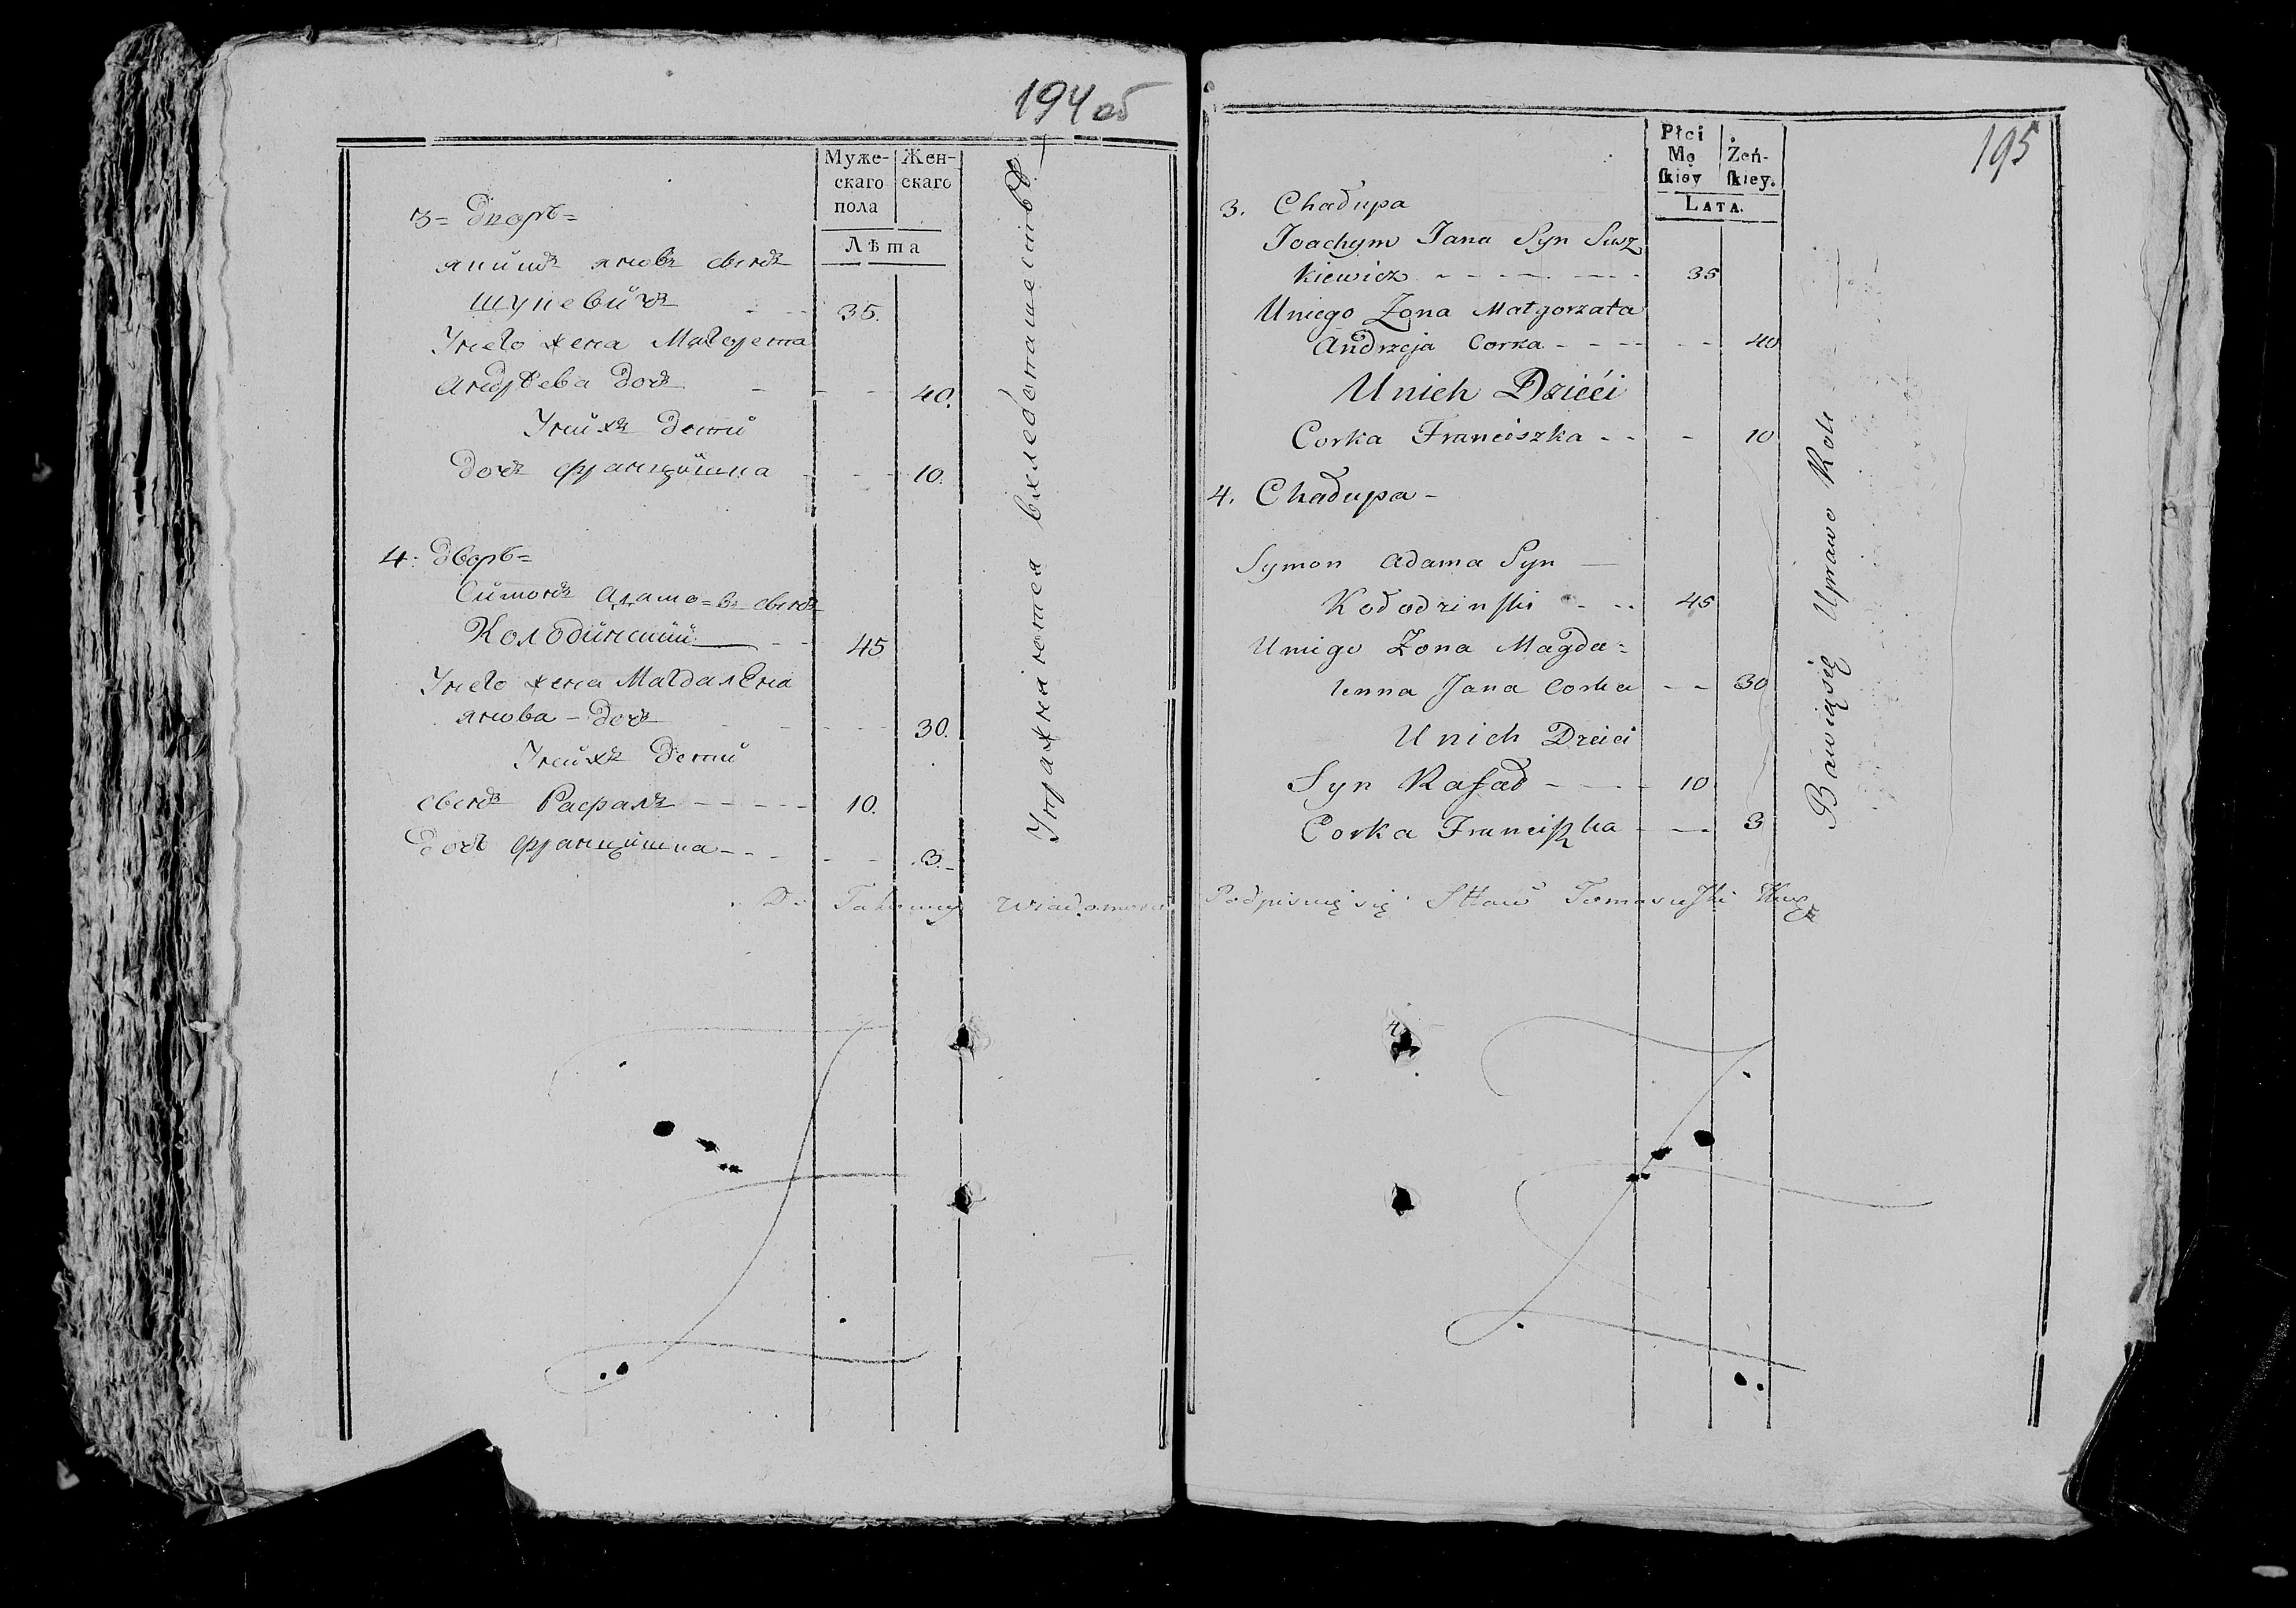 194 об
Муже-
скаго
пола
Жен-
скаго
Лѣта
3= Дворъ=
якимъ яновъ сынъ
шукевичъ - - 35.
Унего жена Малгорета
андрѣева дочь - - - 40.
Унихъ дети
дочь францишка - - - 10.
4: дворъ=
Симонъ адамо=въ сынъ
Колодинский - - 45
Унего жена Магдалена
янова - дочь - - - 30.
Унихъ дети
сынъ Рафалъ - - - - - 10.
дочь францишка - - - - - 3.
Упражняются вхлебопашестве
195
Płci
Mę
skiey
Żeń-
skiey.
LATA.
3. Chałupa
Joachym Jana Syn Susz
kiewicz - - - - - - 35
Uniego Żona Małgorzata
Andrzeja Corka - - - - - 40
Unich Dzieći
Corka Franciszka - - - 10
4. Chałupa -
Symon Adama Syn —
Kołodzinski - - - 45
Uniego Żona Magda=
lenna Jana Corka - - 30
Unich Dzieci
Syn Rafał - - - 10
Corka Franciszka - - 3
Bawiąsię Uprawo Roli
Do Takowey Wiadomosci Podpisuię się Stław Tomasewski